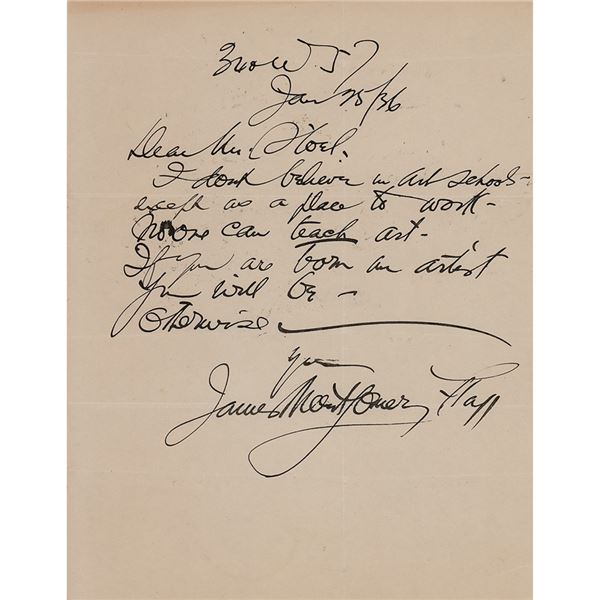 Jan 25/36
Dear Mr.
I don't believe in art schools -
except as a place to work -
No one can teach art -
If you are born an artist
you will be -
otherwise
yrs
James Montgomery Flagg